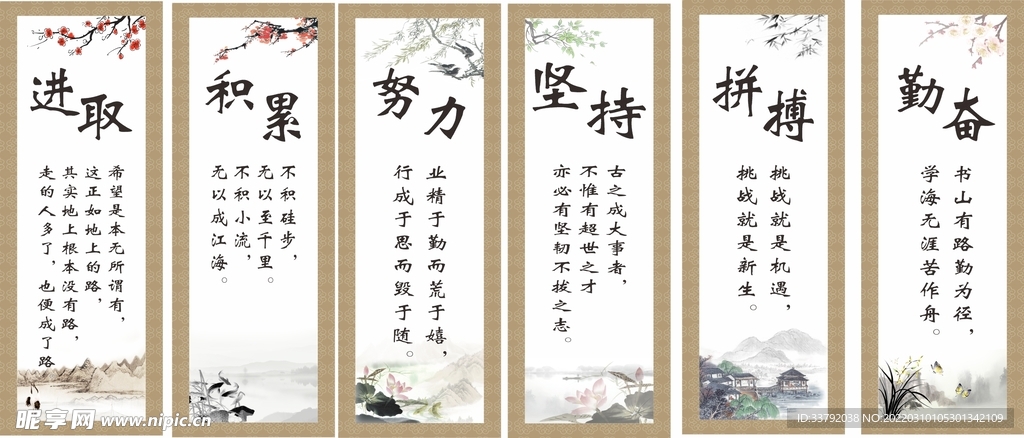 进取
希望是本无所谓有，
这正如地上的路，
其实地上根本没有路，
走的人多了，也便成了路
积累
不积硅步，
无以至千里。
不积小流，
无以成江海。
努力
业精于勤而荒于嬉，
行成于思而毁于随。
坚持
古之成大事者，
不惟有超世之才
亦必有坚韧不拔之志。
拼搏
挑战就是机遇，
挑战就是新生。
勤奋
书山有路勤为径，
学海无涯苦作舟。
昵享网 www.nipic.cn
ID:33792038 NO:20220310105301342109